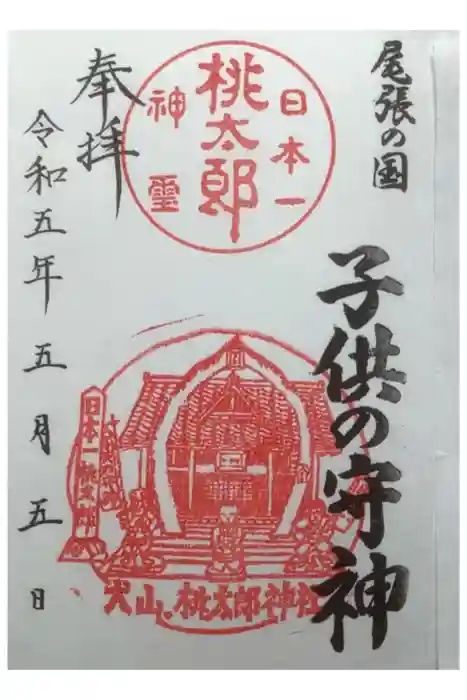 尾張の国
子供の守神
日本一
桃太郎
神霊
奉拝
令和五年五月五日
日本一桃太郎
犬山。桃太郎神社